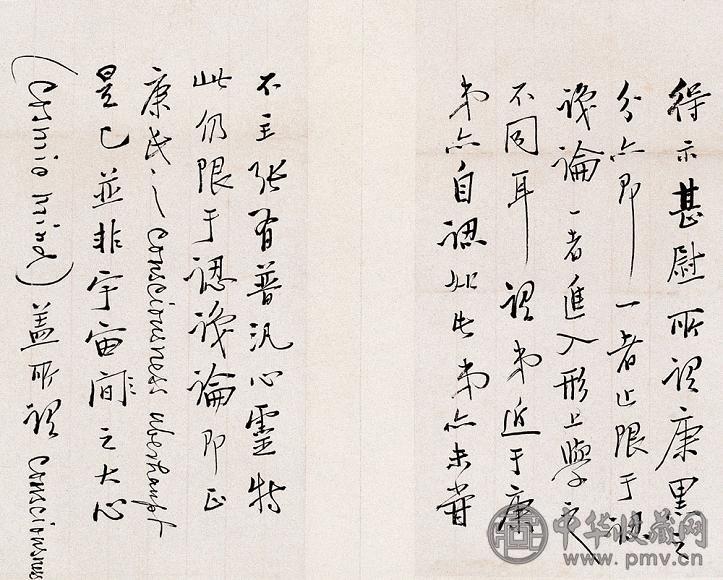 得示甚慰所谓康黑之
分亦即一者止限于認
識論一者進入形上學之
不同耳谓弟近于康
弟亦自認如此弟亦未嘗
不主张有普汎心靈特
此仍限于認識論即正
康氏之Consciousness überhaupt
是已並非宇宙间之大心
(Cosmic mind)盖所谓Consciousness
中华收藏网
www.pmv.cn